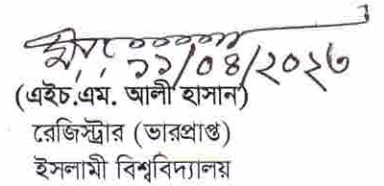 ১১/০৪/২০২৩
(এইচ.এম. আলী হাসান)
রেজিস্ট্রার (ভারপ্রাপ্ত)
ইসলামী বিশ্ববিদ্যালয়